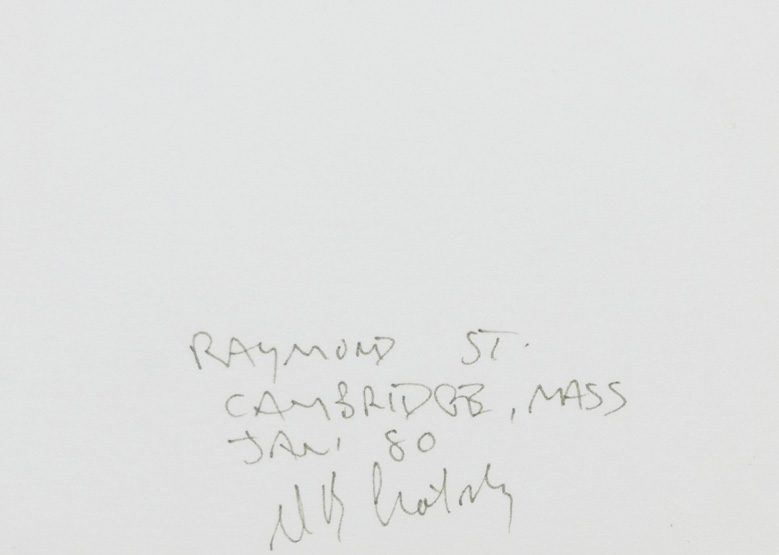 RAYMOND ST.
CAMBRIDGE, MASS
JAN 80